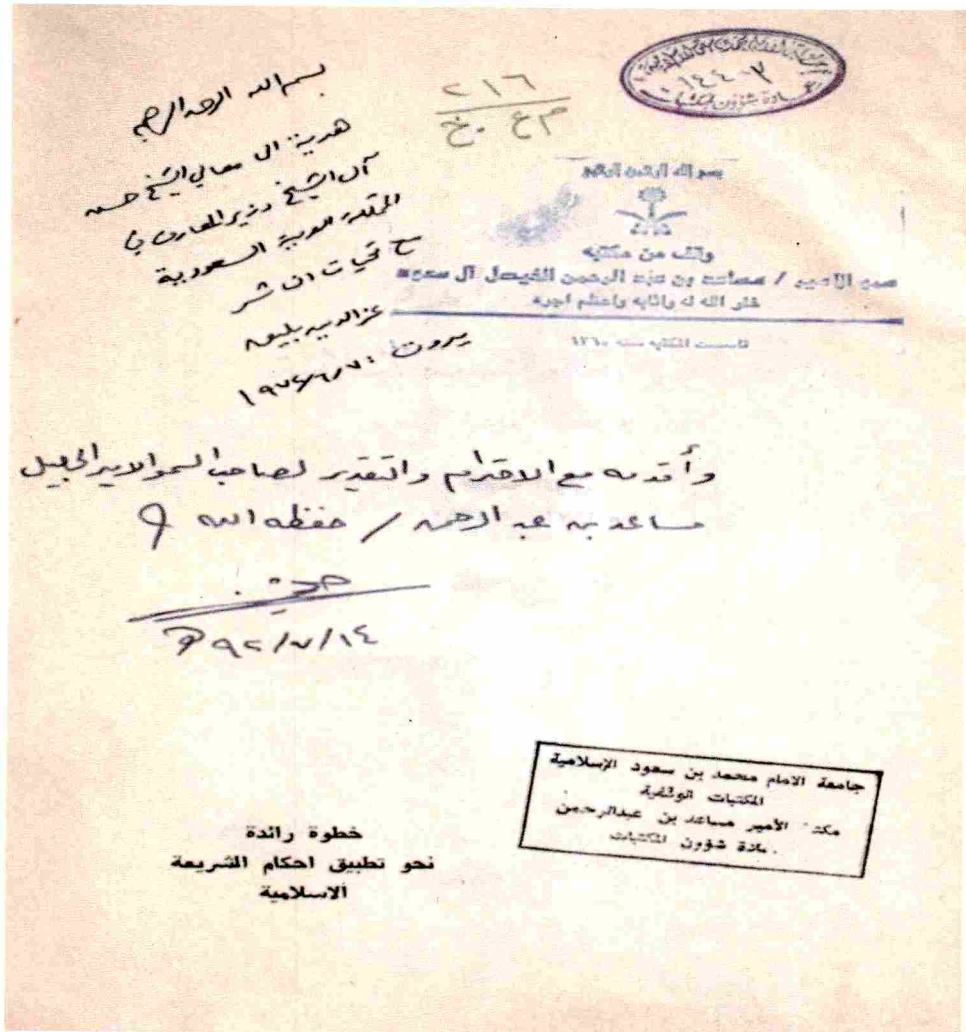 ١٤٤٠٣
عمادة شؤون المكتبات
٢١٦
م ع . خ
بسم الله الرحمن الرحيم
هدية الى معالي الشيخ حسن
آل الشيخ وزير المعارف في
المملكة العربية السعودية
مع تحيات الناشر
عز الدين بليق
بيروت
بسم الله الرحمن الرحيم
وقف من مكتبة
سمو الأمير / مساعد بن عبد الرحمن الفيصل آل سعود
غفر الله له واثابه واعظم اجره
تأسست المكتبة سنة ١٣٦٠
وأقدمه مع الاحترام والتقدير لصاحب السمو الامير الجليل
مساعد بن عبد الرحمن / حفظه الله
٩٢/٧/١٤ هـ
جامعة الامام محمد بن سعود الإسلامية
المكتبات الوقفية
مكتبة الأمير مساعد بن عبدالرحمن
عمادة شؤون المكتبات
خطوة رائدة
نحو تطبيق احكام الشريعة
الاسلامية